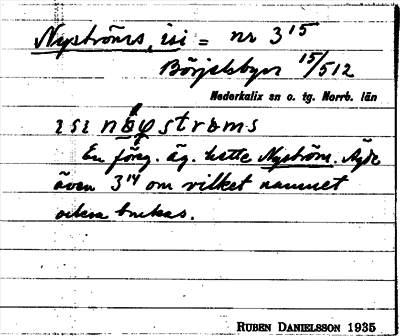 Nyströms, isi = nr 3¹⁵
Börjelsbyn 15/512
Nederkalix sn o. tg. Norrb. län
En föreg. äg. hette Nyström. Ägde
även 3¹⁴ om vilket namnet
också brukas.
RUBEN DANIELSSON 1935